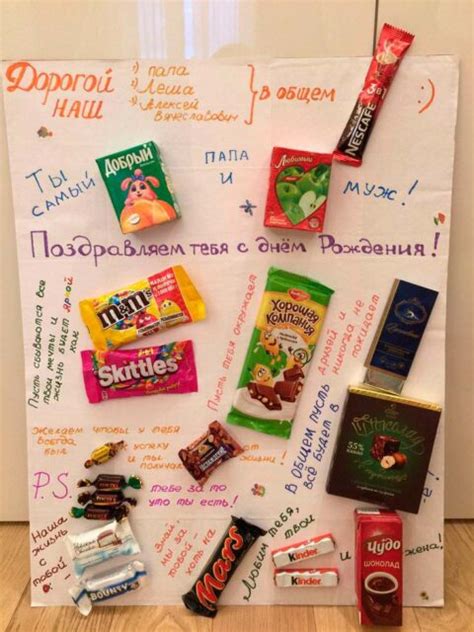 Дорогой
наш
1) папа
2) Леша
3) Алексей
Вячеславович
в общем
:)
NESCAFÉ
3 в 1
Ты
самый
Добрый
папа
и
Любимый
муж!
Поздравляем тебя с днём Рождения!
Пусть сбываются все
твои мечты и
жизнь будет яркой
как
m&m's
Skittles
Пусть тебя окружает
Хорошая
компания
друзей и
никогда не
покидает
В общем пусть
всё будет в
Шоколаде
55%
Желаем чтобы у тебя
всегда
был
к успеху
и ты
получал
от
жизни!
P.S.
тебе за то
что ты есть!
Наша
жизнь
с
тобой -
BOUNTY
Знай
мы за
тобой -
хоть на
Mars
Любим тебя,
твои
Kinder
Kinder
и
жена!
Чудо
ШОКОЛАД